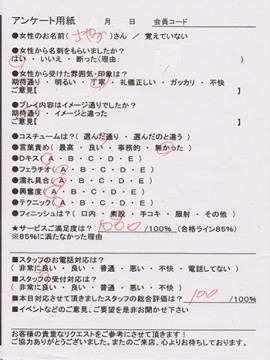 アンケート用紙　　月　　日　　会員コード
●女性のお名前（　　）さん / 覚えていない
●女性から名刺をもらいましたか?
はい ・ いいえ ・ 断った（理由:　　）
●女性から受けた雰囲気・印象は?
期待通り ・ 明るい ・ 丁寧 ・ 礼儀正しい ・ ガッカリ ・ 不快
ご意見【　　】
●プレイ内容はイメージ通りでしたか?
期待通り ・ イメージと違った
ご意見【　　】
●コスチュームは?（ 選んだ通り ・ 選んだのと違う ）
●言葉責め（ 最高 ・ 良い ・ 事務的 ・ 無かった ）
●Dキス（ A ・ B ・ C ・ D ・ E ）
●フェラチオ（ A ・ B ・ C ・ D ・ E ）
●濡れ具合（ A ・ B ・ C ・ D ・ E ）
●興奮度（ A ・ B ・ C ・ D ・ E ）
●テクニック（ A ・ B ・ C ・ D ・ E ）
●フィニッシュは?（ 口内 ・ 素股 ・ 手コキ ・ 服射 ・ その他 ）
★サービスご満足度は? 1000 /100%（合格ライン85%）
※85%に満たなかった理由
■スタッフのお電話対応は?
（ 非常に良い ・ 良い ・ 普通 ・ 悪い ・ 不快 ・ 電話してない ）
■スタッフの受付対応は?
（ 非常に良い ・ 良い ・ 普通 ・ 悪い ・ 不快 ）
■本日対応させて頂きましたスタッフの総合評価は? 100 /100%
■イベントなどのご意見、ご要望を是非お聞かせ下さい!
お客様の貴重なリクエストをご参考にさせて頂きます!
ご協力ありがとうございました。またのご来店、心よりお待ちしております。